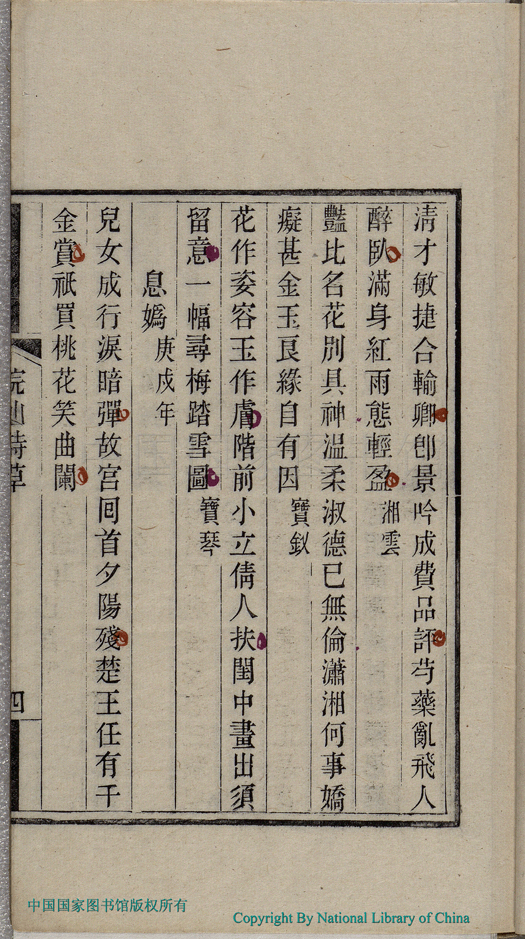 清才敏捷合輸卿卽景吟成費品評芍藥亂飛人
醉臥滿身紅雨態輕盈 湘雲
豔比名花別具神溫柔淑德已無倫瀟湘何事嬌
癡甚金玉良緣自有因 寶釵
花作姿容玉作膚階前小立倩人扶閨中畫出須
留意一幅尋梅踏雪圖 寶琴
息嬀 庚戌年
兒女成行淚暗彈故宮囘首夕陽殘楚王任有千
金賞祇買桃花笑曲闌
仙詩草
四
中国国家图书馆版权所有
Copyright By National Library of China